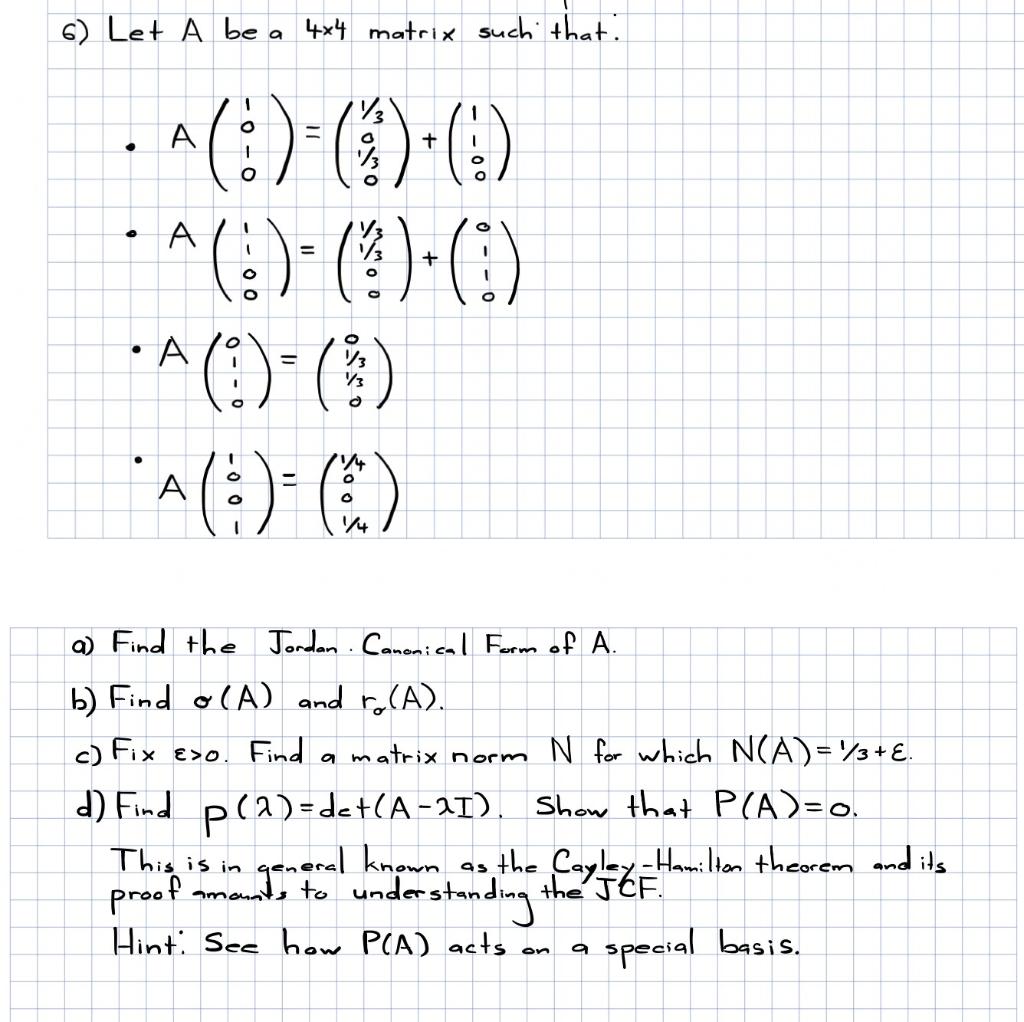 6) Let A be a 4x4 matrix such that:
• A (1 0 1 0) = (1/3 0 1/3 0) + (1 1 0 0)
• A (1 1 0 0) = (1/3 1/3 0 0) + (0 1 1 0)
• A (0 1 1 0) = (0 1/3 1/3 0)
• A (1 0 0 1) = (1/4 0 0 1/4)
a) Find the Jordan Canonical Form of A.
b) Find σ(A) and rσ(A).
c) Fix ε>0. Find a matrix norm N for which N(A)=1/3+ε.
d) Find p(λ)=det(A-λI). Show that P(A)=0.
This is in general known as the Cayley-Hamilton theorem and its
proof amounts to understanding the JCF.
Hint: See how P(A) acts on a special basis.